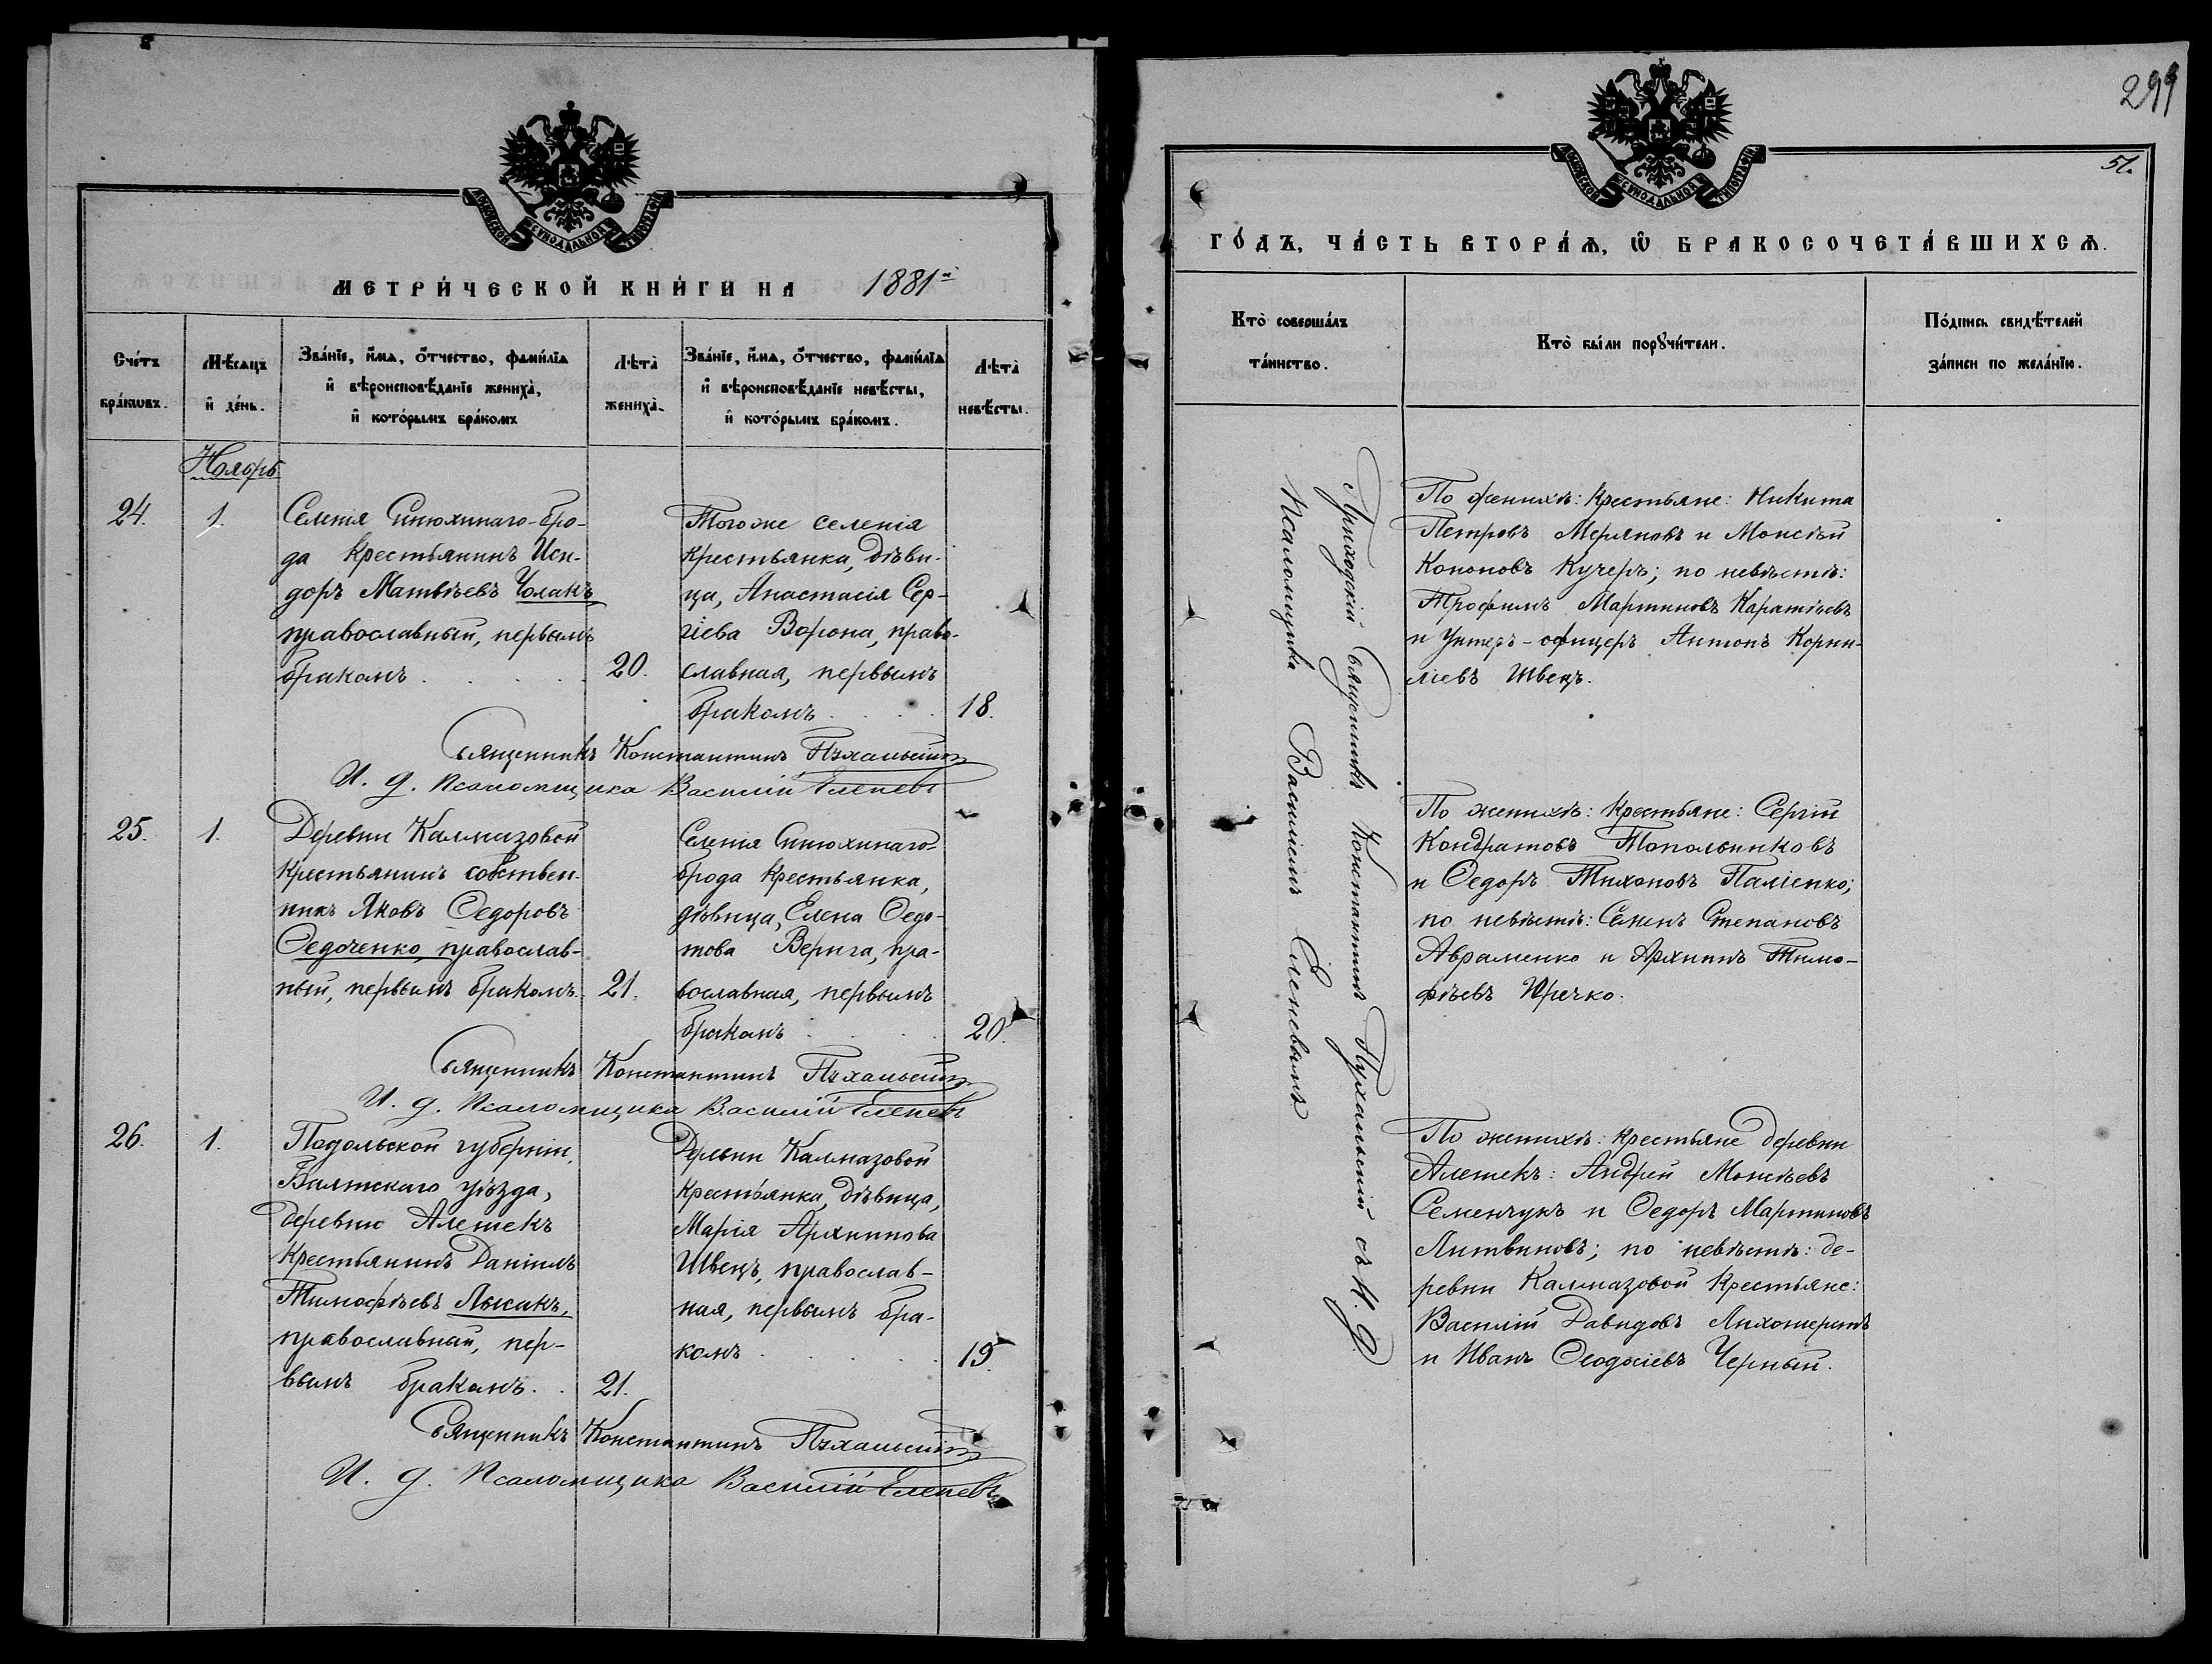 МЕТРИ́ЧЕСКОЙ КНИ́ГИ НА 1881й
Сче́тъ бра́кѡвъ.
Мѣ́сяцъ и҆ де́нь.
Зва́нїе, и҆́мѧ, ѻ҆́тчество, фами́лїѧ и҆ вѣроисповѣ́данїе жениха̀, и҆ кото́рымъ бра́комъ
Лѣ́та жениха̀.
Зва́нїе, и҆́мѧ, ѻ҆́тчество, фами́лїѧ и҆ вѣроисповѣ́данїе невѣ́сты, и҆ кото́рымъ бра́комъ.
Лѣ́та невѣ́сты.
Ноябрь
24.
1.
Селенія Синюхинаго-Бро-
да крестьянинъ Иси-
доръ Матвѣевъ Чолакъ
православный, первымъ
бракомъ
20.
Тогоже селенія
крестьянка, дѣви-
ца, Анастасія Сер-
гіева Ворона, право-
славная, первымъ
бракомъ
18.
Священникъ Константинъ Пухальскій
И. д. Псаломщика Василій Еленевъ
25.
1.
Деревни Калмазовой
крестьянинъ собствен-
никъ Яковъ Ѳедоровъ
Ѳедоченко, православ-
ный, первымъ бракомъ.
21.
Селенія Синюхинаго-
брода крестьянка,
дѣвица, Елена Ѳедо-
това Верига, пра-
вославная, первымъ
бракомъ
20.
Священникъ Константинъ Пухальскій
И. д. Псаломщика Василій Еленевъ
26.
1.
Подольской губерніи,
Балтскаго уѣзда,
деревни Алешекъ
крестьянинъ Даніилъ
Тимофѣевъ Лысакъ,
православный, пер-
вымъ бракомъ.
21.
Деревни Калмазовой
крестьянка, дѣвица,
Марія Архиппова
Швецъ, православ-
ная, первымъ бра-
комъ
19.
Священникъ Константинъ Пухальскій
И. д. Псаломщика Василій Еленевъ
МОСКОВСКОЙ СѴНОДАЛЬНОЙ ТИПОГРАФІИ
299
51.
ГО́ДЪ, ЧА́СТЬ ВТОРА́Ѧ, Ѡ҆ БРАКОСОЧЕТА́ВШИХСѦ.
Кто̀ соверша́лъ та́инство.
Кто̀ бы́ли порꙋчи́тели.
По́дпись свидѣ́телей за́писи по жела́нїю.
Приходскій Священникъ Константинъ Пухальскій съ И. Д.
Псаломщика Василіемъ Еленевымъ
По женихѣ: крестьяне: Никита
Петровъ Меряновъ и Моисѣй
Кононовъ Кучеръ; по невѣстѣ:
Трофимъ Мартиновъ Каратѣевъ
и Унтеръ-офицеръ Антонъ Корни-
ліевъ Швецъ.
По женихѣ: крестьяне: Сергій
Кондратовъ Топольниковъ
и Ѳедоръ Тихоновъ Паліенко;
по невѣстѣ: Семенъ Степановъ
Авраменко и Архипъ Тимо-
фѣевъ Пречко.
По женихѣ: крестьяне деревни
Алешекъ: Андрей Моисѣевъ
Семенчукъ и Ѳедоръ Мартиновъ
Литвиновъ; по невѣстѣ: де-
ревни Калмазовой крестьяне:
Василій Давидовъ Лихошерстъ
и Иванъ Ѳеодосіевъ Черный.